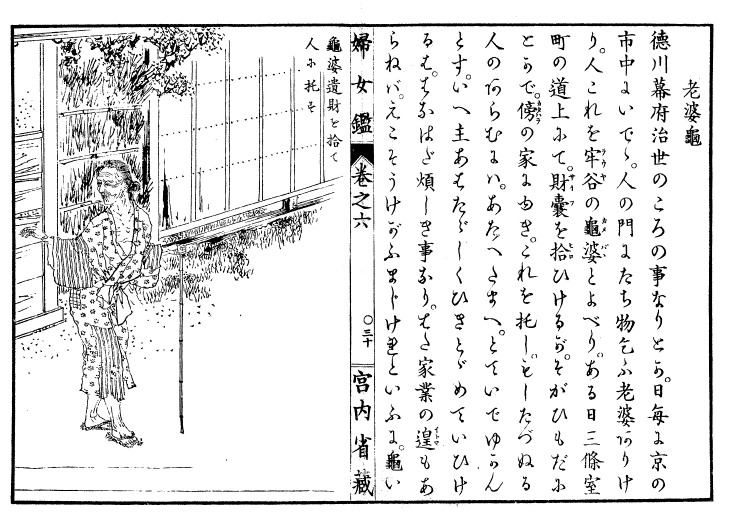 老婆龜
德川幕府治世のころの事なりとか。日每に京の
市中にいでゝ。人の門にたち物乞ふ老婆ありけ
り。人これを牢谷の龜婆とよべり。ある日三條室
町の道上にて。財囊を拾ひけるが。そがひもだに
とかで。傍の家にゆき。これを托し。もしたづぬる
人のあらむには。あたへたまへ。とていでゆかん
とす。いへ主あはたゞしくひきとゞめていひけ
るは。はなはだ煩しき事なり。はた家業の遑もあ
らねば。えこそうけがふまじけれといふに。龜い
婦女鑑 卷之六 〇三十 宮内省藏
龜婆遺財を拾て
人に托す